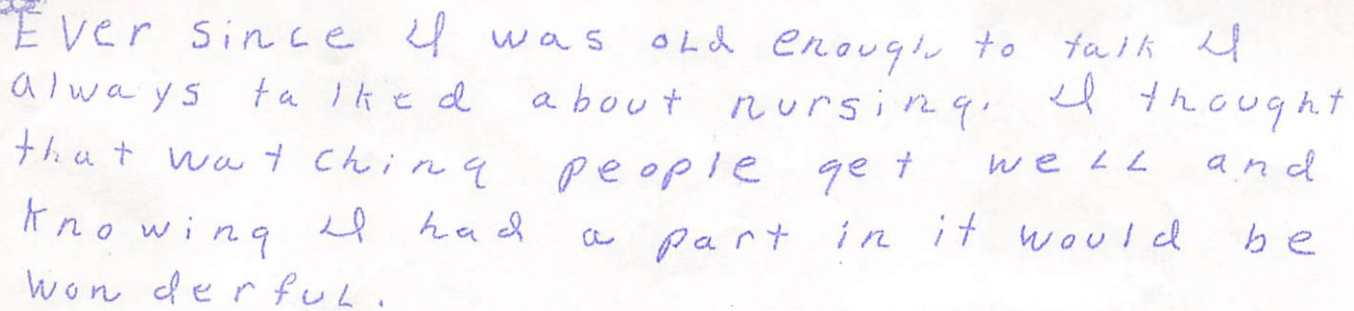 Ever since I was old enough to talk I
always talked about nursing. I thought
that watching people get well and
knowing I had a part in it would be
wonderful.